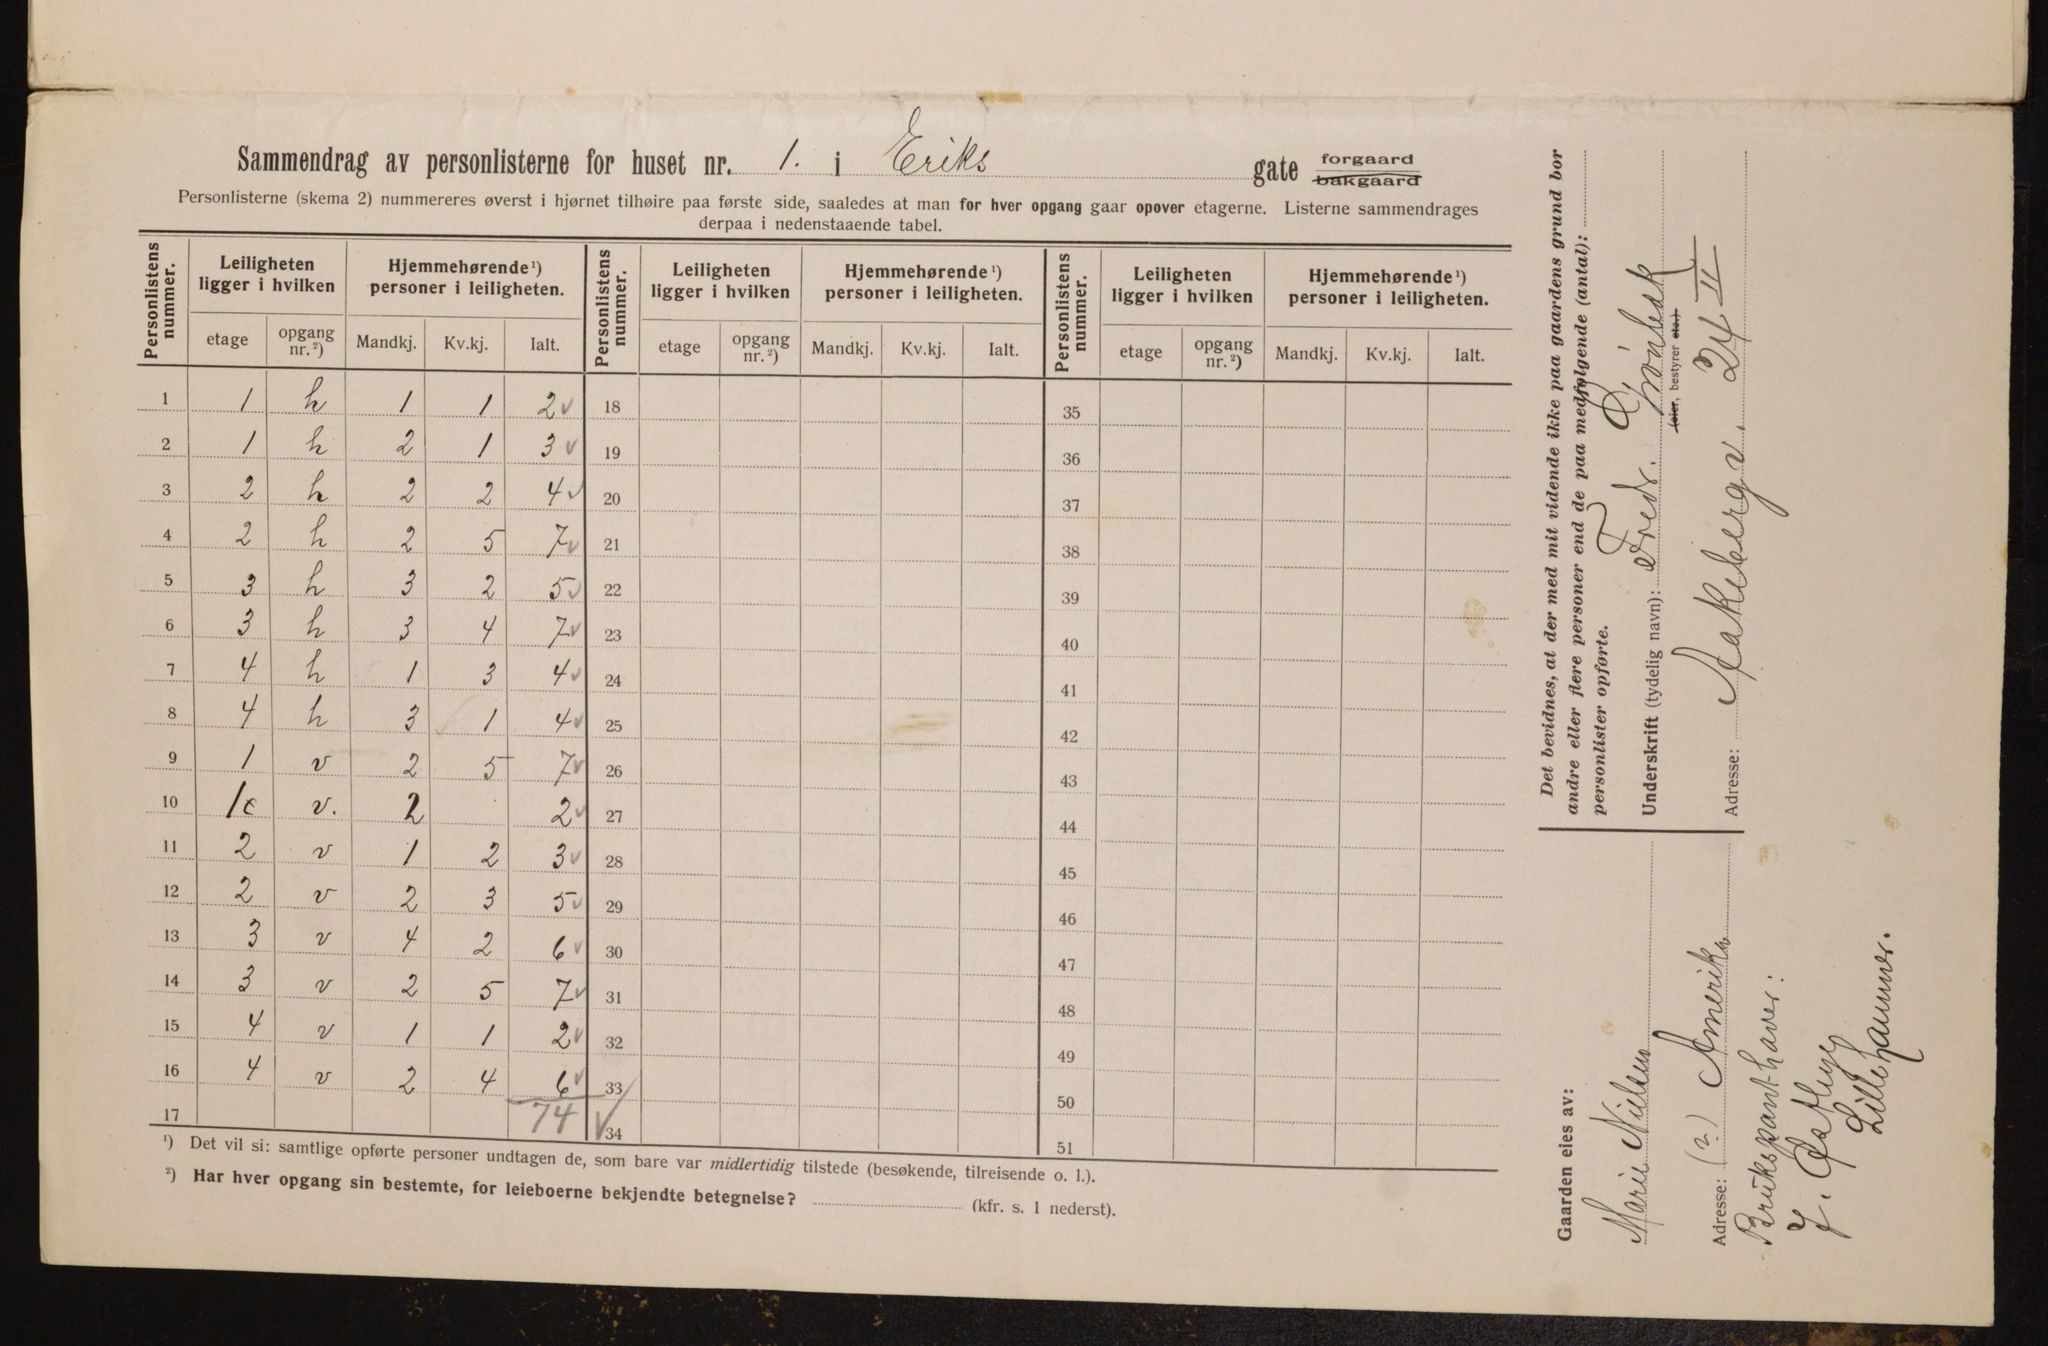 Sammendrag av personlisterne for huset nr. 1. i Eriks gate forgaard bakgaard
Personlisterne (skema 2) nummereres øverst i hjørnet tilhøire paa første side, saaledes at man for hver opgang gaar opover etagerne. Listerne sammendrages
derpaa i nedenstaaende tabel.
Personlistens nummer. Leiligheten ligger i hvilken Hjemmehørende ¹) personer i leiligheten. Personlistens nummer. Leiligheten ligger i hvilken Hjemmehørende ¹) personer i leiligheten. Personlistens nummer. Leiligheten ligger i hvilken Hjemmehørende ¹) personer i leiligheten.
etage opgang nr. ²) Mandkj. Kv.kj. Ialt. etage opgang nr. ²) Mandkj. Kv.kj. Ialt. etage opgang nr. ²) Mandkj. Kv.kj. Ialt.
1 1 h 1 1 2 ✓ 18 35
2 1 h 2 1 3 ✓ 19 36
3 2 h 2 2 4 ✓ 20 37
4 2 h 2 5 7 ✓ 21 38
5 3 h 3 2 5 ✓ 22 39
6 3 h 3 4 7 ✓ 23 40
7 4 h 1 3 4 ✓ 24 41
8 4 h 3 1 4 ✓ 25 42
9 1 v 2 5 7 ✓ 26 43
10 1c v. 2 2 ✓ 27 44
11 2 v 1 2 3 ✓ 28 45
12 2 v 2 3 5 ✓ 29 46
13 3 v 4 2 6 ✓ 30 47
14 3 v 2 5 7 ✓ 31 48
15 4 v 1 1 2 ✓ 32 49
16 4 v 2 4 6 ✓ 33 50
17 74 ✓ 34 51
¹) Det vil si: samtlige opførte personer undtagen de, som bare var midlertidig tilstede (besøkende, tilreisende o. l.).
²) Har hver opgang sin bestemte, for leieboerne bekjendte betegnelse? (kfr. s. 1 nederst).
Det bevidnes, at der med mit vidende ikke paa gaardens grund bor
andre eller flere personer end de paa medfølgende (antal):
personlister opførte.
Underskrift (tydelig navn): Fredr.
(eier, bestyrer etc.)
Adresse: Aakebergv. 24 II
Gaarden eies av:
Marie Nielsen
Adresse: (?) Amerika
Brukspanthaver:
J.
Lillehammer.